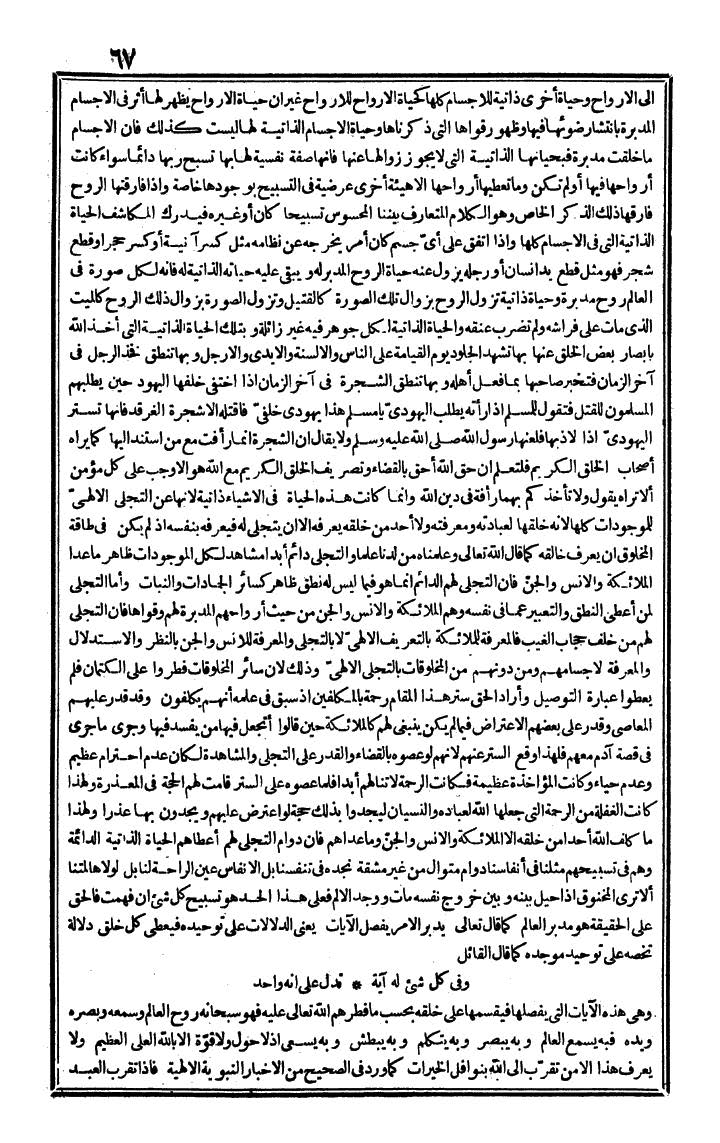 ٦٧
الى الارواح وحياة أخرى ذاتية للاجسام كلها كحياة الارواح للارواح غيران حياة الارواح يظهر لها أثر فى الاجسام
المدبرة بانتشار ضوئها فيها وظهور قواها التى ذكرناها وحياة الاجسام الذاتية لها ليست كذلك فان الاجسام
ماخلقت مدبرة فبحياتها الذاتية التى لايجوز زوالها عنها فانها صفة نفسية لها بها تسبح ربها دائما سواء كانت
أرواحها فيها أولم تكن وما تعطيها أرواحها الاهيئة أخرى عرضية فى التسبيح بوجودها خاصة واذا فارقتها الروح
فارقها ذلك الذكر الخاص وهو الكلام المتعارف بيننا المحسوس تسبيحا كان أوغيره فيدرك المكاشف الحياة
الذاتية التى فى الاجسام كلها واذا اتفق على أىّ جسم كان أمر يخرجه عن نظامه مثل كسرآنية أوكسر حجر اوقطع
شجر فهو مثل قطع يد انسان أورجله يزول عنه حياة الروح المدبر له ويبقى عليه حياته الذاتية له فانه لكل صورة فى
العالم روح مدبرة وحياة ذاتية تزول الروح بزوال تلك الصورة كالقتيل وتزول الصورة بزوال ذلك الروح كالميت
الذى مات على فراشه ولم تضرب عنقه والحياة الذاتية لكل جوهر فيه غير زائلة وبتلك الحياة الذاتية التى أخذ الله
بابصار بعض الخلق عنها بها تشهد الجلود يوم القيامة على الناس والالسنة والايدى والارجل وبها تنطق فخذ الرجل فى
آخر الزمان فتخبر صاحبها بمافعل أهله وبها تنطق الشجرة فى آخر الزمان اذا اختفى خلفها اليهود حين يطلبهم
المسلمون للقتل فتقول للمسلم اذا رأته يطلب اليهودىّ يامسلم هذا يهودى خلفىّ فاقتله الاشجرة الغرقد فانها تستر
اليهودىّ اذا لاذ بها فلعنها رسول الله صلى الله عليه وسلم ولايقال ان الشجرة انما رأفت مع من استند اليها كما يراه
أصحاب الخلق الكريم فلتعلم ان حق الله أحق بالقضاء وتصريف الخلق الكريم مع الله هو الاوجب على كل مؤمن
ألا تراه يقول ولا تأخذكم بهما رأفة فى دين الله وانما كانت هذه الحياة فى الاشياء ذاتية لانها عن التجلى الالهىّ
للموجودات كلها لانه خلقها لعبادته ومعرفته ولا أحد من خلقه يعرفه الا ان يتجلى له فيعرفه بنفسه اذ لم يكن فى طاقة
المخلوق ان يعرف خالقه كما قال الله تعالى وعلمناه من لدنا علما والتجلى دائم أبدا مشاهد لكل الموجودات ظاهر ماعدا
الملائكة والانس والجنّ فان التجلى لهم الدائم انما هو فيما ليس له نطق ظاهر كسائر الجمادات والنبات وأما التجلى
لمن أعطى النطق والتعبير عما فى نفسه وهم الملائكة والانس والجن من حيث أرواحهم المدبرة لهم وقواها فان التجلى
لهم من خلف حجاب الغيب فالمعرفة للملائكة بالتعريف الالهىّ لابالتجلى والمعرفة للانس والجن بالنظر والاستدلال
والمعرفة لاجسامهم ومن دونهم من المخلوقات بالتجلى الالهىّ وذلك لان سائر المخلوقات فطروا على الكتمان فلم
يعطوا عبارة التوصيل وأراد الحق سترهذا المقام رحمة بالمكلفين اذسبق فى علمه أنهم يكلفون وقدقدرعليهم
المعاصى وقدر على بعضهم الاعتراض فيما لم يكن ينبغى لهم كالملائكة حين قالوا أتجعل فيها من يفسد فيها وجرى ماجرى
فى قصة آدم معهم فلهذا وقع السترعنهم لانهم لو عصوه بالقضاء والقدر على التجلى والمشاهدة لكان عدم احترام عظيم
وعدم حياء وكانت المؤاخذة عظيمة فكانت الرحمة لاتنالهم أبدا فلما عصوه على الستر قامت لهم الحجة فى المعذرة ولهذا
كانت الغفلة من الرحمة التى جعلها الله لعباده والنسيان ليجدوا بذلك حجة لو اعترض عليهم ويجدون بها عذرا ولهذا
ماكلف الله أحدا من خلقه الا الملائكة والانس والجنّ وماعداهم فان دوام التجلى لهم أعطاهم الحياة الذاتية الدائمة
وهم فى تسبيحهم مثلنا فى أنفاسنا دوام متوال من غير مشقة نجده فى تنفسنا بل الانفاس عين الراحة لنا بل لولاها لمتنا
ألا ترى المخنوق اذا حيل بينه وبين خروج نفسه مات ووجد الالم فعلى هذا الحد هو تسبيح كل شئ ان فهمت فالحق
على الحقيقة هو مدبر العالم كما قال تعالى يدبر الامر يفصل الآيات يعنى الدلالات على توحيده فيعطى كل خلق دلالة
تخصه على توحيد موجده كما قال القائل
وفى كل شئ له آية * تدل على انه واحد
وهى هذه الآيات التى يفصلها فيقسمها على خلقه بحسب مافطرهم الله تعالى عليه فهو سبحانه روح العالم وسمعه وبصره
ويده فبه يسمع العالم وبه يبصر وبه يتكلم وبه يبطش وبه يسعى اذ لاحول ولا قوّة الا بالله العلى العظيم ولا
يعرف هذا الا من تقرّب الى الله بنوافل الخيرات كما ورد فى الصحيح من الاخبار النبوية الالهية فاذا تقرب العبد